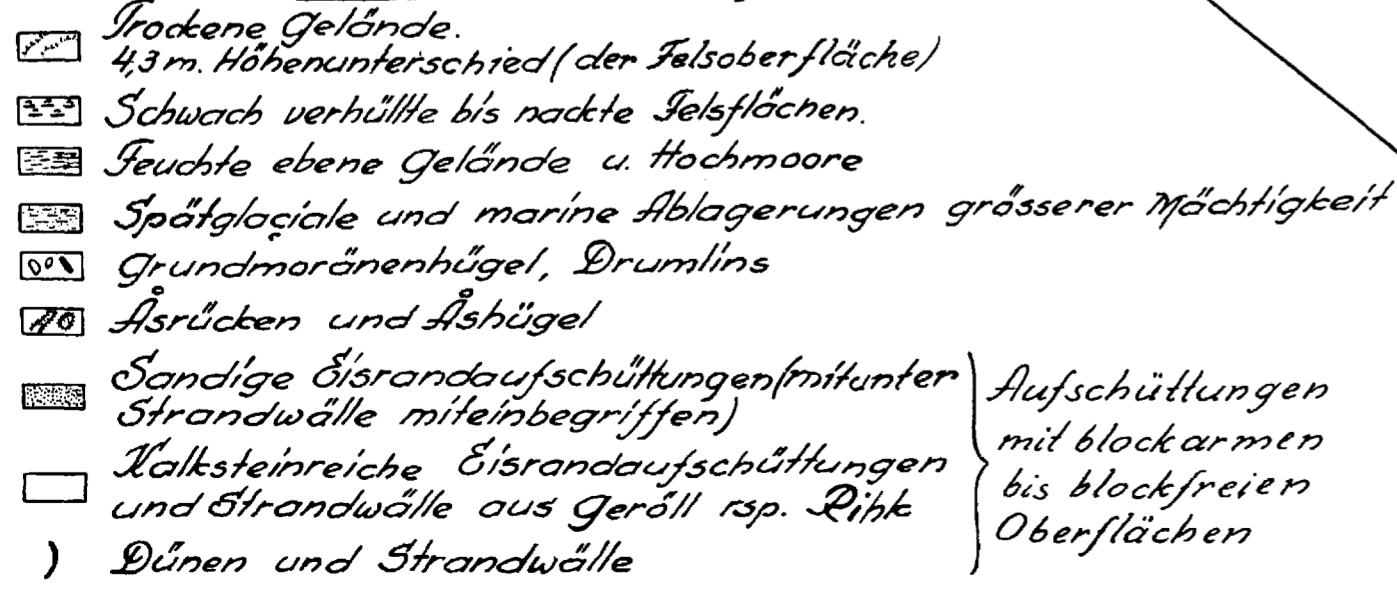 Trockene Gelände.
4,3 m. Höhenunterschied (der Felsoberfläche)
Schwach verhüllte bis nackte Felsflächen.
Feuchte ebene Gelände u. Hochmoore
Spätglaciale und marine Ablagerungen grösserer Mächtigkeit
Grundmoränenhügel, Drumlins
Åsrücken und Åshügel
Sandige Eisrandaufschüttungen (mitunter
Strandwälle miteinbegriffen)
Kalksteinreiche Eisrandaufschüttungen
und Strandwälle aus Geröll rsp. Rihk
Dünen und Strandwälle
Aufschüttungen
mit blockarmen
bis blockfreien
Oberflächen